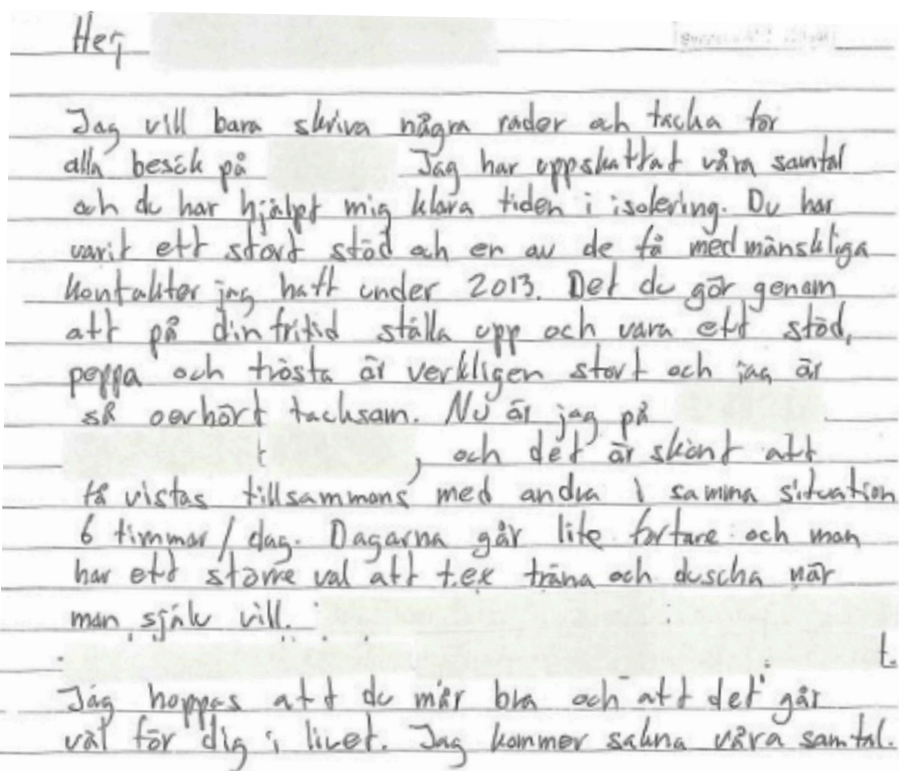 Hej
Jag vill bara skriva några rader och tacka för
alla besök på Jag har uppskattat våra samtal
och du har hjälpt mig klara tiden i isolering. Du har
varit ett stort stöd och en av de få medmänskliga
kontakter jag haft under 2013. Det du gör genom
att på din fritid ställa upp och vara ett stöd,
peppa och trösta är verkligen stort och jag är
så oerhört tacksam. Nu är jag på
, och det är skönt att
få vistas tillsammans med andra i samma situation
6 timmar/dag. Dagarna går lite fortare och man
har ett större val att t.ex träna och duscha när
man själv vill.
t.
Jag hoppas att du mår bra och att det går
väl för dig i livet. Jag kommer sakna våra samtal.